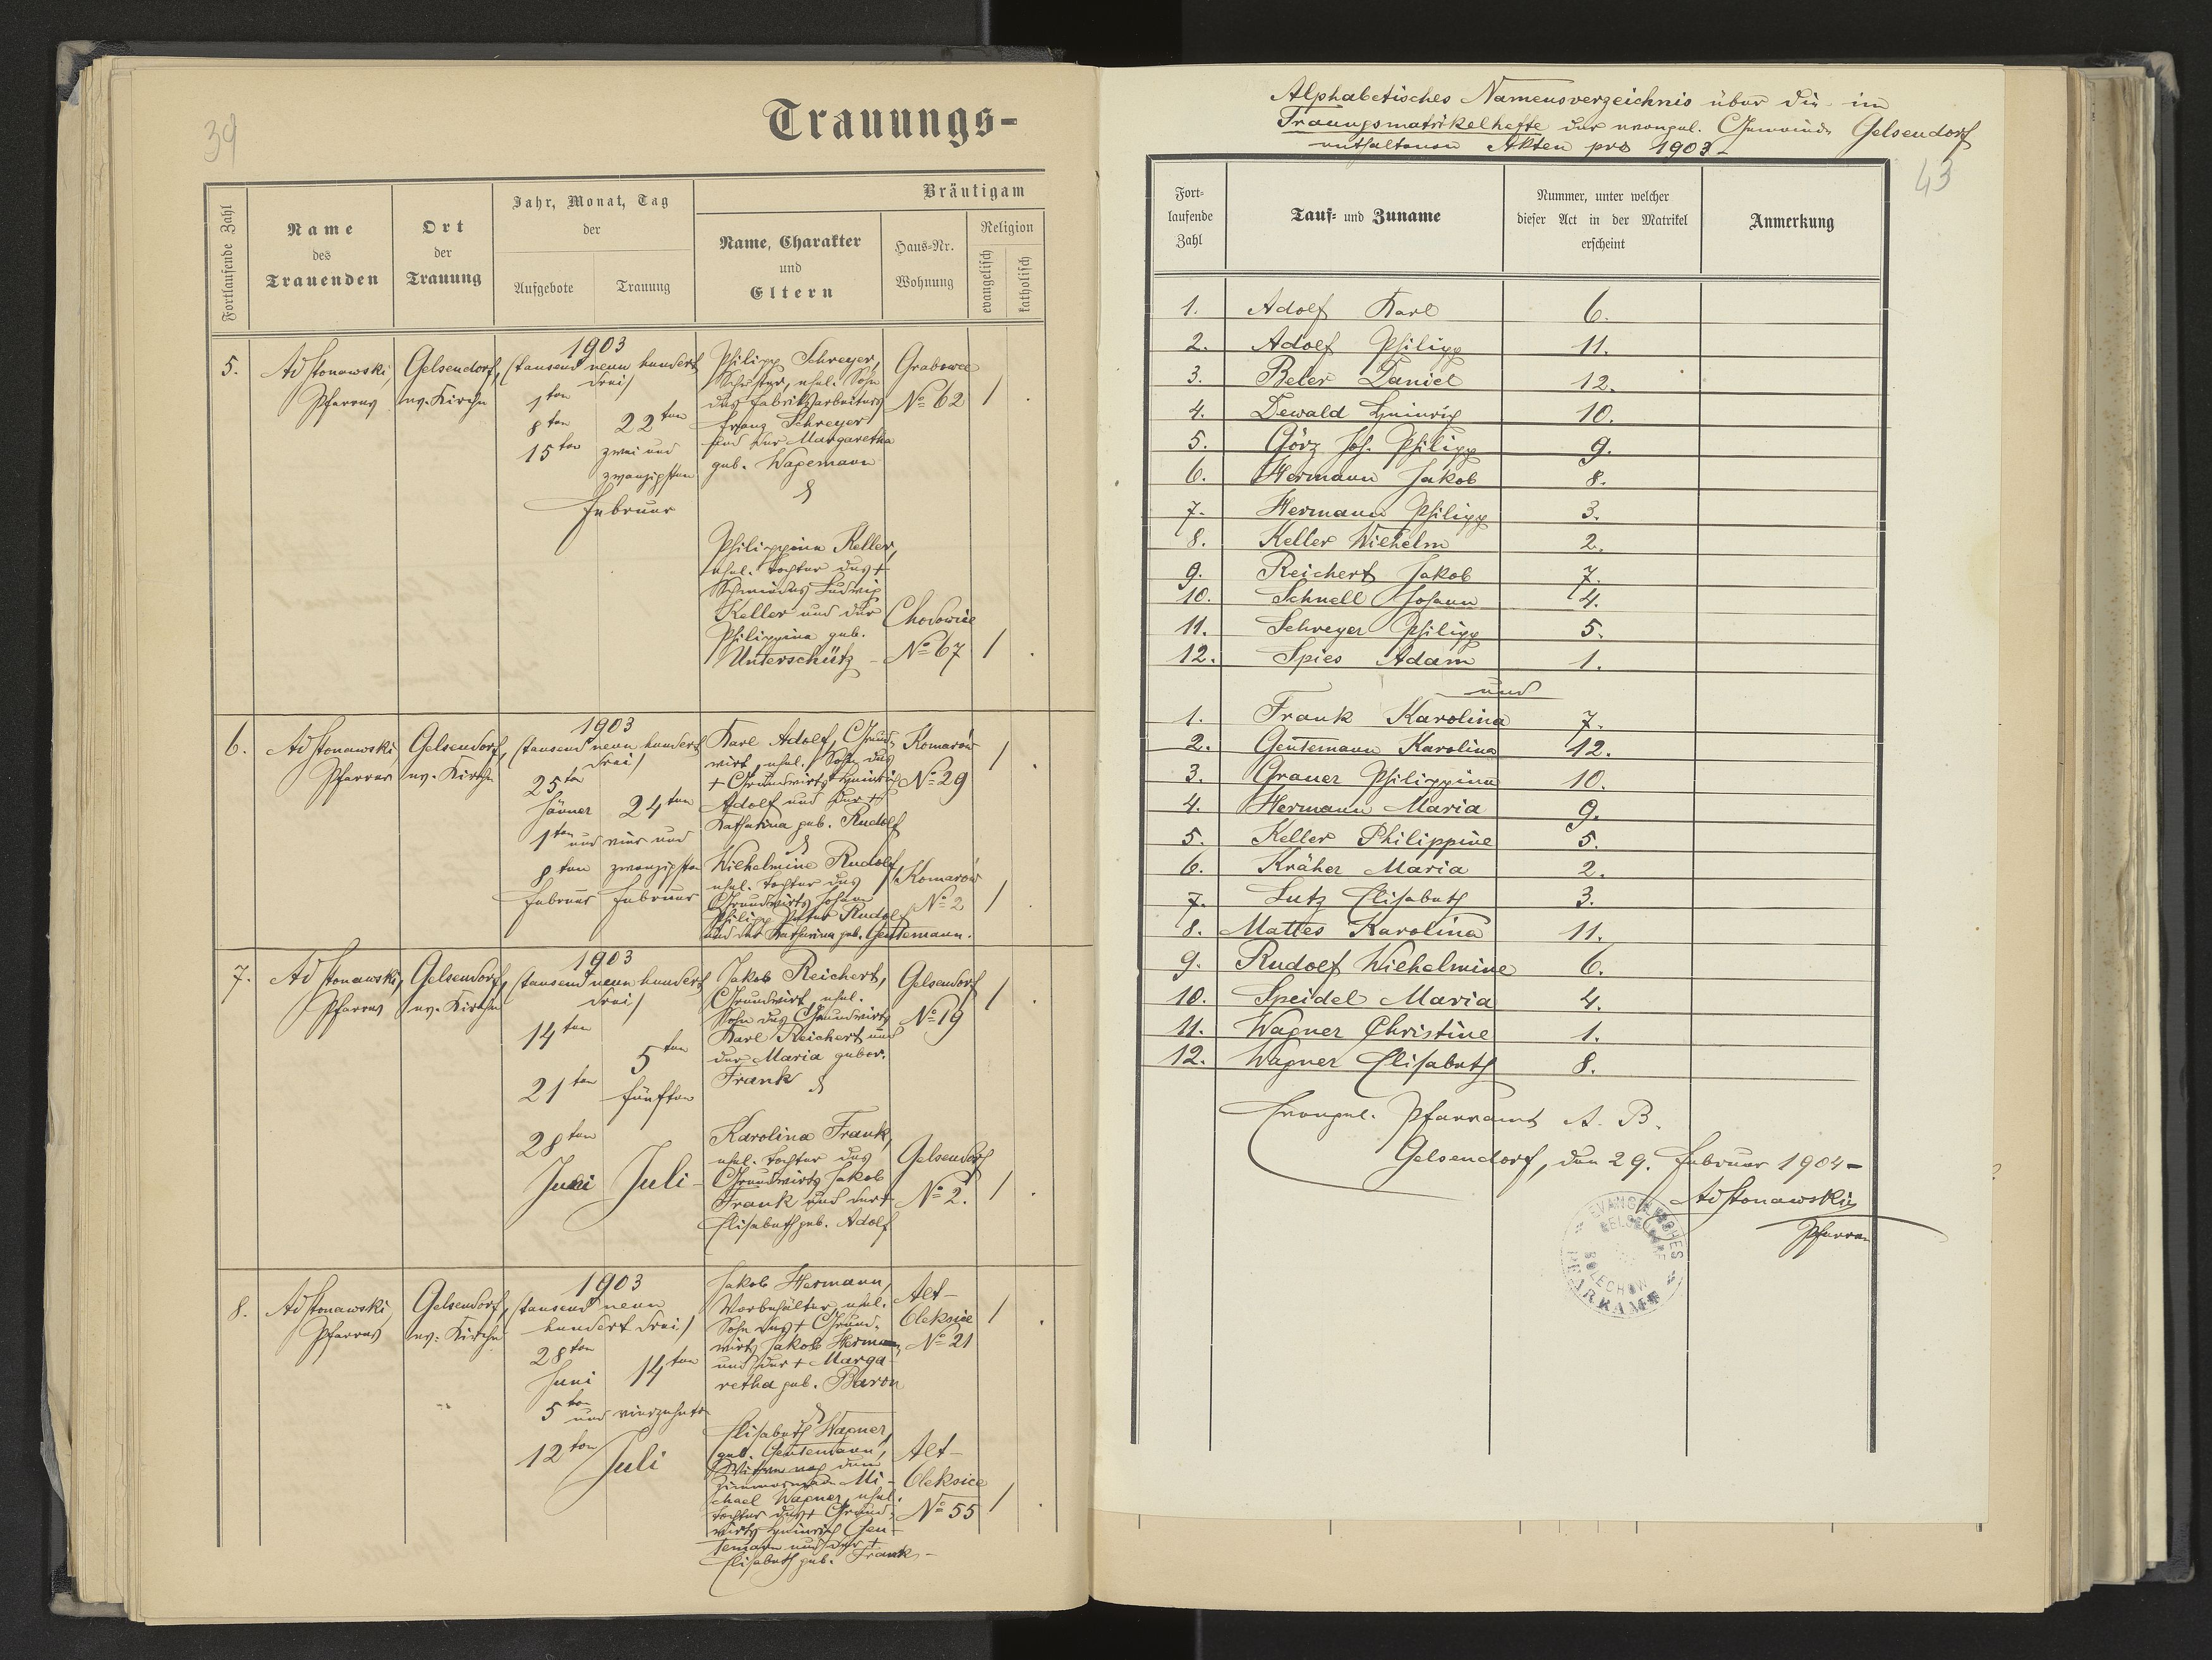 39
Trauungs-
Fortlaufende Zahl
Name des Trauenden
Ort der Trauung
Jahr, Monat, Tag der
Aufgebote
Trauung
Bräutigam
Name, Charakter und Eltern
Haus-Nr.
Wohnung
Religion
evangelisch
katholisch
5.
Ad Stonawski,
Pfarrer
Gelsendorf,
ev. Kirche
1903
(tausend neun hundert
drei)
1ten
8ten
15ten
22ten
zwei und
zwanzigsten
Februar
Philipp Schreyer,
Schuster, ehel. Sohn
des Fabriksarbeiters
Franz Schreyer
und der Margaretha
geb. Wagemann
&
Grabowce
No 62
/
Philippine Keller,
ehel. Tochter des +
Schmiedes Ludwig
Keller und der
Philippina geb.
Unterschütz -
Chodowice
No 67
/
6.
Ad Stonawski,
Pfarrer
Gelsendorf,
ev. Kirche
1903
(tausend neun hundert
drei)
25ten
Jänner
1ten und
8ten
Februar
24ten
vier und
zwanzigsten
Februar
Karl Adolf, Grund-
wirt, ehel. Sohn des
+ Grundwirts Heinrich
Adolf und der +
Katharina geb. Rudolf
&
Komarów
No 29
/
Wilhelmine Rudolf,
ehel. Tochter des
Grundwirts Johann
Philipp Peter Rudolf
und der Katharina geb. Gentemann.
Komarów
No 2
/
7.
Ad Stonawski,
Pfarrer
Gelsendorf,
ev. Kirche
1903
(tausend neun hundert
drei)
14ten
21ten
28ten
Juni
5ten
fünften
Juli -
Jakob Reichert,
Grundwirt, ehel.
Sohn des Grundwirts
Karl Reichert und
der Maria gebor.
Frank
&
Gelsendorf
No 19
/
Karolina Frank,
ehel. Tochter des
Grundwirts Jakob
Frank und der +
Elisabeth geb. Adolf
Gelsendorf
No 2.
/
8.
Ad Stonawski,
Pfarrer
Gelsendorf,
ev. Kirche
1903
(tausend neun
hundert drei)
28ten
Juni
5ten und
12ten
14ten
vierzehnten
Juli
Jakob Hermann,
Vorbehälter, ehel.
Sohn des + Grund-
wirts Jakob Hermann
und der + Marga-
retha geb. Baron
&
Alt-
Oleksice
No 21
/
Elisabeth Wagner,
geb. Gentemann,
Witwe nach dem
Zimmermann Mi-
chael Wagner, ehel.
Tochter des + Grund-
wirts Heinrich Gen-
temann und der +
Elisabeth geb. Frank -
Alt-
Oleksice
No 55
/
Alphabetisches Namensverzeichnis über die im
Trauungsmatrikelhefte der evangel. Gemeinde Gelsendorf
enthaltenen Akten pro 1903 -
43
Fort-
laufende
Zahl
Tauf- und Zuname
Nummer, unter welcher
dieser Act in der Matrikel
erscheint
Anmerkung
1. Adolf Karl 6.
2. Adolf Philipp 11.
3. Beler Daniel 12.
4. Dewald Heinrich 10.
5. Görz Joh. Philipp 9.
6. Hermann Jakob 8.
7. Hermann Philipp 3.
8. Keller Wilhelm 2.
9. Reichert Jakob 7.
10. Schnell Johann 4.
11. Schreyer Philipp 5.
12. Spies Adam 1.
und
1. Frank Karolina 7.
2. Gentemann Karolina 12.
3. Grauer Philippina 10.
4. Hermann Maria 9.
5. Keller Philippine 5.
6. Kräher Maria 2.
7. Lutz Elisabeth 3.
8. Mattes Karolina 11.
9. Rudolf Wilhelmine 6.
10. Speidel Maria 4.
11. Wagner Christine 1.
12. Wagner Elisabeth 8.
Evangel. Pfarramt A. B.
Gelsendorf, den 29. Februar 1904 -
Ad Stonawski
Pfarrer
EVANGELISCHES
PFARRAMT
BOLECHOW